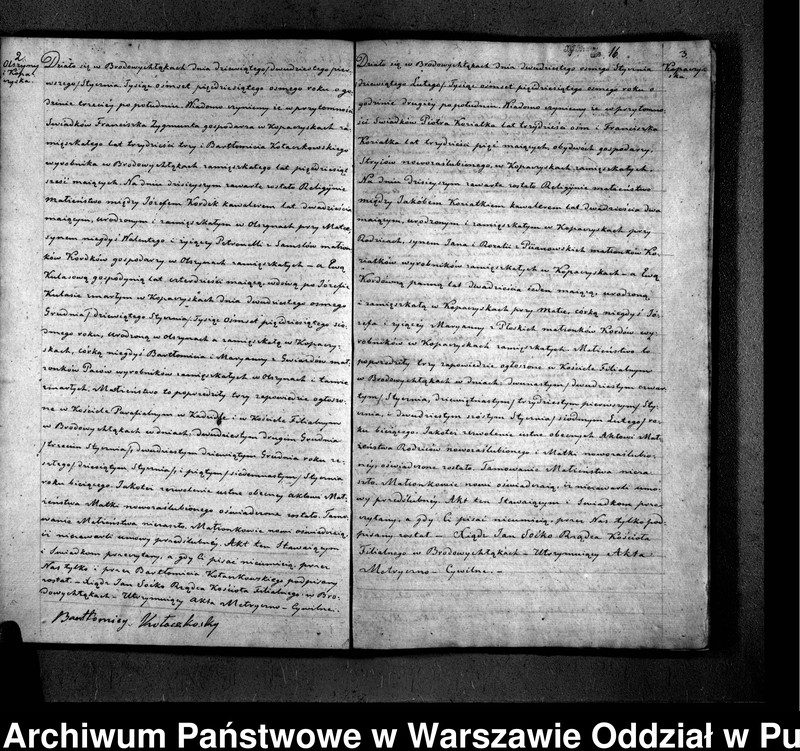 2
Olszyny
i Kopa-
ryska.
Działo się w Brodowychłąkach dnia dziewiątego/dwudziestego pier-
wszego/Stycznia Tysiąc ośmset pięćdziesiątego osmego roku o go-
dzinie trzeciej po południu. Wiadomo czyniemy że w przytomności
Świadków Franciszka Zygmunta gospodarza w Koparyskach za-
mięszkałego lat trzydzieści trzy i Bartłomieja Kołaczkowskiego
wyrobnika w Brodowychłąkach zamięszkałego lat pięćdziesiąt
sześć maiących. Na dniu dzisieyszym zawarte zostało Religijne
małżeństwo między Józefem Kordek kawalerem lat dwadzieścia
maiącym, urodzonym i zamięszkałym w Olszynach przy Matce,
synem niegdy Walentego i żyiącey Petronelli z Samslów małżon-
ków Kordków gospodarzy w Olszynach zamięszkałych – a Ewą
Kulasową gospodynią lat czterdzieści maiącą, wdową po Józefie
Kulasie zmarłym w Koparyskach dnia dwudziestego osmego
Grudnia/dziewiątego Stycznia/Tysiąc Ośmset pięćdziesiątego sió-
dmego roku, urodzoną w Olszynach a zamięszkałą w Kopary-
skach, córką niegdyś Bartłomieia i Maryanny z Gwiazdów mał-
żonków Paców wyrobników zamięszkałych w Olszynach i tamże
zmarłych. Małżeństwo to poprzedziły trzy zapowiedzie ogłoszo-
ne w Kościele Parafialnym w Kadzidle i w Kościele Filialnym
w Brodowychłąkach w dniach: dwudziestym drugim Grudnia
/trzecim Stycznia/, dwudziestym dziewiątym Grudnia roku ze-
szłego/dziesiątym Stycznia/, i piątym/siedmnastym/Stycznia
roku bieżącego. Jakoteż zezwolenie ustne obecney Aktowi Mał-
żeństwa Matki nowozaślubionego oświadczone zostało. Tamo-
wanie Małżeństwa niezaszło. Małżonkowie nowi oświadczają,
iż niezawarli umowy przedślubnej. Akt ten Stawaiącym
i Świadkom przeczytany, a gdy Ci pisać nieumieią, przez
Nas tylko i przez Bartłomieia Kołaczkowskiego podpisany
został – Xiądz Jan Soćko Rządca Kościoła Filialnego w Bro-
dowychłąkach – Utrzymuiący Akta Metryczno-Cywilne.
Bartłomiey Kołaczkosky
16
3
Koparys-
ka.
Działo się w Brodowychłąkach dnia dwudziestego osmego Stycznia
dziewiątego Lutego/Tysiąc ośmset pięćdziesiątego osmego roku o
godzinie drugiéy po południu. Wiadomo czyniemy że w przytomno-
ści Świadków Piotra Koziatka lat trzydzieścia ośm i Franciszka
Koziatka lat trzydzieści pięć maiących, obydwóch gospodarzy,
Stryiów nowozaślubionego, w Koparyskach zamięszkałych.
Na dniu Dzisieyszym zawarte zostało Religijne małżeństwo
między Jakóbem Koziatkiem kawalerem lat dwadzieścia dwa
maiącym, urodzonym i zamięszkałym w Koparyskach przy
Rodzicach, synem Jana i Rozalii z Pianowskich małżonków Ko-
ziatków wyrobników zamięszkałych w Koparyskach – a Ewą
Kordówną panną lat dwadzieścia ieden maiącą, urodzoną
i zamięszkałą w Koparyskach przy Matce, córką niegdyś Jó-
zefa i żyiącey Maryanny z Pluskich małżonków Kordów wy-
robników w Koparyskach zamięszkałych. Małżeństwo to
poprzedziły trzy zapowiedzie ogłoszone w Kościele Filialnym
w Brodowychłąkach w dniach: dwunastym/dwudziestym czwar-
tym/Stycznia, dziewiętnastym/trzydziestym pierwszym/Sty-
cznia, i dwudziestym szóstym Stycznia/siódmym Lutego/ro-
ku bieżącego. Jakoteż zezwolenie ustne obecnych Aktowi Mał-
żeństwa Rodziców nowozaślubionego i Matki nowozaślubio-
néy, oświadczone zostało. Tamowanie Małżeństwa nieza-
szło. Małżonkowie nowi oświadczaią, iż niezawarli umo-
wy przedślubnéy. Akt ten Stawaiącym i Świadkom prze-
czytany, a gdy Ci pisać nieumieią, przez Nas tylko pod-
pisany został – Xiądz Jan Soćko Rządca Kościoła
Filialnego w Brodowychłąkach – Utrzymuiący Akta
Metryczno-Cywilne. –
Archiwum Państwowe w Warszawie Oddział w Pu